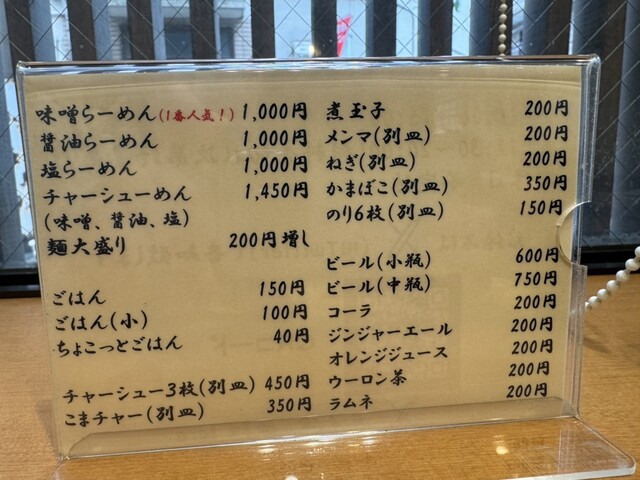 味噌らーめん(1番人気!) 1,000円
醤油らーめん 1,000円
塩らーめん 1,000円
チャーシューめん 1,450円
(味噌、醤油、塩)
麺大盛り 200円増し
ごはん 150円
ごはん(小) 100円
ちょこっとごはん 40円
チャーシュー3枚(別皿) 450円
こまチャー(別皿) 350円
煮玉子 200円
メンマ(別皿) 200円
ねぎ(別皿) 200円
かまぼこ(別皿) 350円
のり6枚(別皿) 150円
ビール(小瓶) 600円
ビール(中瓶) 750円
コーラ 200円
ジンジャーエール 200円
オレンジジュース 200円
ウーロン茶 200円
ラムネ 200円